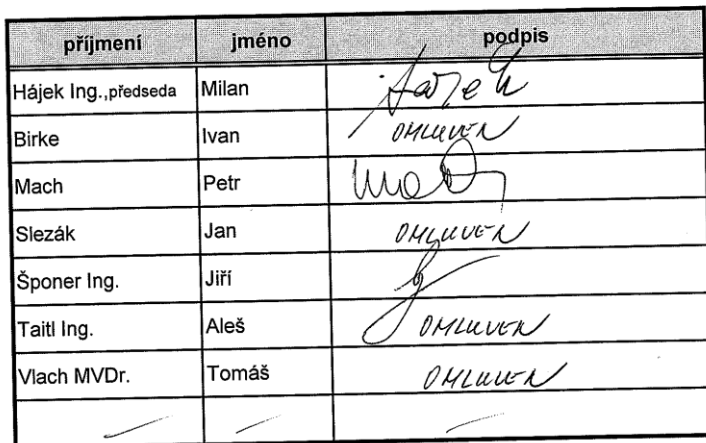 příjmení jméno podpis
Hájek Ing.,předseda Milan Hájek
Birke Ivan OMLUVEN
Mach Petr Mach
Slezák Jan OMLUVEN
Šponer Ing. Jiří
Taitl Ing. Aleš OMLUVEN
Vlach MVDr. Tomáš OMLUVEN